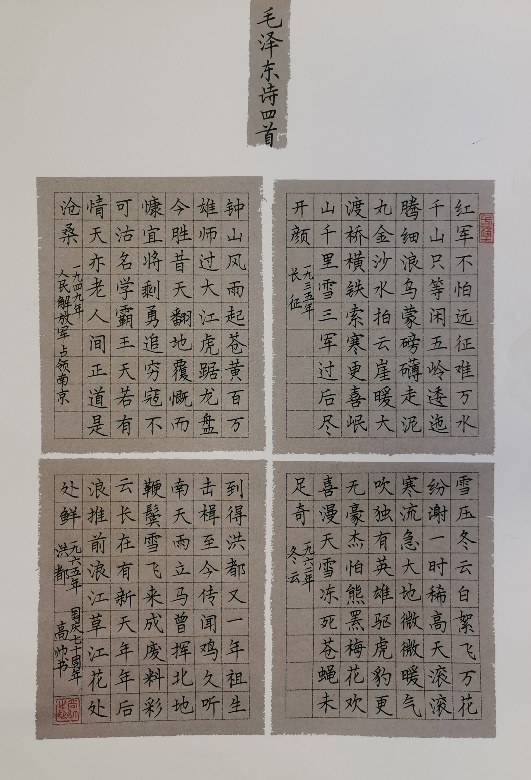 毛泽东诗四首
红军不怕远征难万水
千山只等闲五岭逶迤
腾细浪乌蒙磅礴走泥
丸金沙水拍云崖暖大
渡桥横铁索寒更喜岷
山千里雪三军过后尽
开颜
一九三五年
长征
钟山风雨起苍黄百万
雄师过大江虎踞龙盘
今胜昔天翻地覆慨而
慷宜将剩勇追穷寇不
可沽名学霸王天若有
情天亦老人间正道是
沧桑
一九四九年
人民解放军占领南京
雪压冬云白絮飞万花
纷谢一时稀高天滚滚
寒流急大地微微暖气
吹独有英雄驱虎豹更
无豪杰怕熊罴梅花欢
喜漫天雪冻死苍蝇未
足奇
一九六二年
冬云
到得洪都又一年祖生
击楫至今传闻鸡久听
南天雨立马曾挥北地
鞭鬓雪飞来成废料彩
云长在有新天年年后
浪推前浪江草江花处
处鲜
一九六五年
洪都
国庆七十周年
高帅书